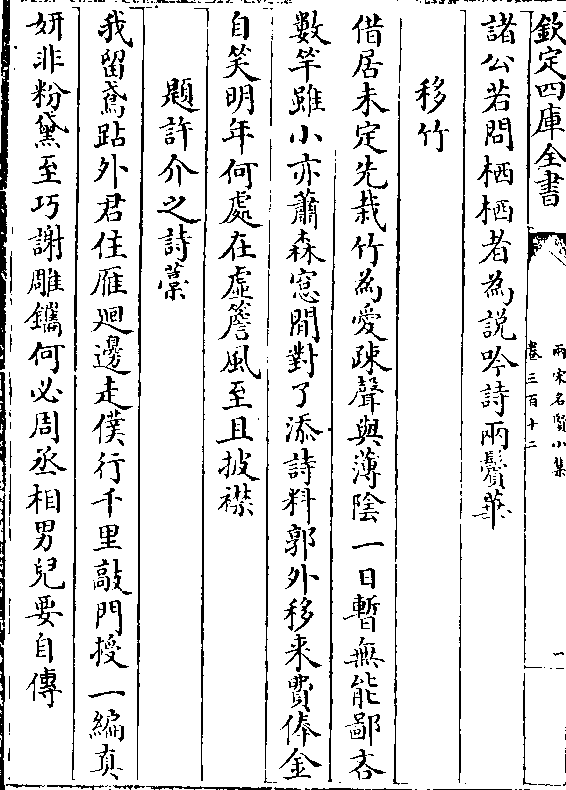 欽定四庫全書
兩宋名賢小集
卷三百十二
一
諸公若問栖栖者為說吟詩兩鬢華
移竹
借居未定先栽竹為愛疎聲與薄陰一日暫無能鄙吝
數竿雖小亦蕭森窓間對了添詩料郭外移来費俸金
自笑明年何處在虛簷風至且披襟
題許介之詩藁
我留鳶跕外君住雁廻邊走僕行千里敲門授一編真
妍非粉黛至巧謝雕鐫何必周丞相男兒要自傳